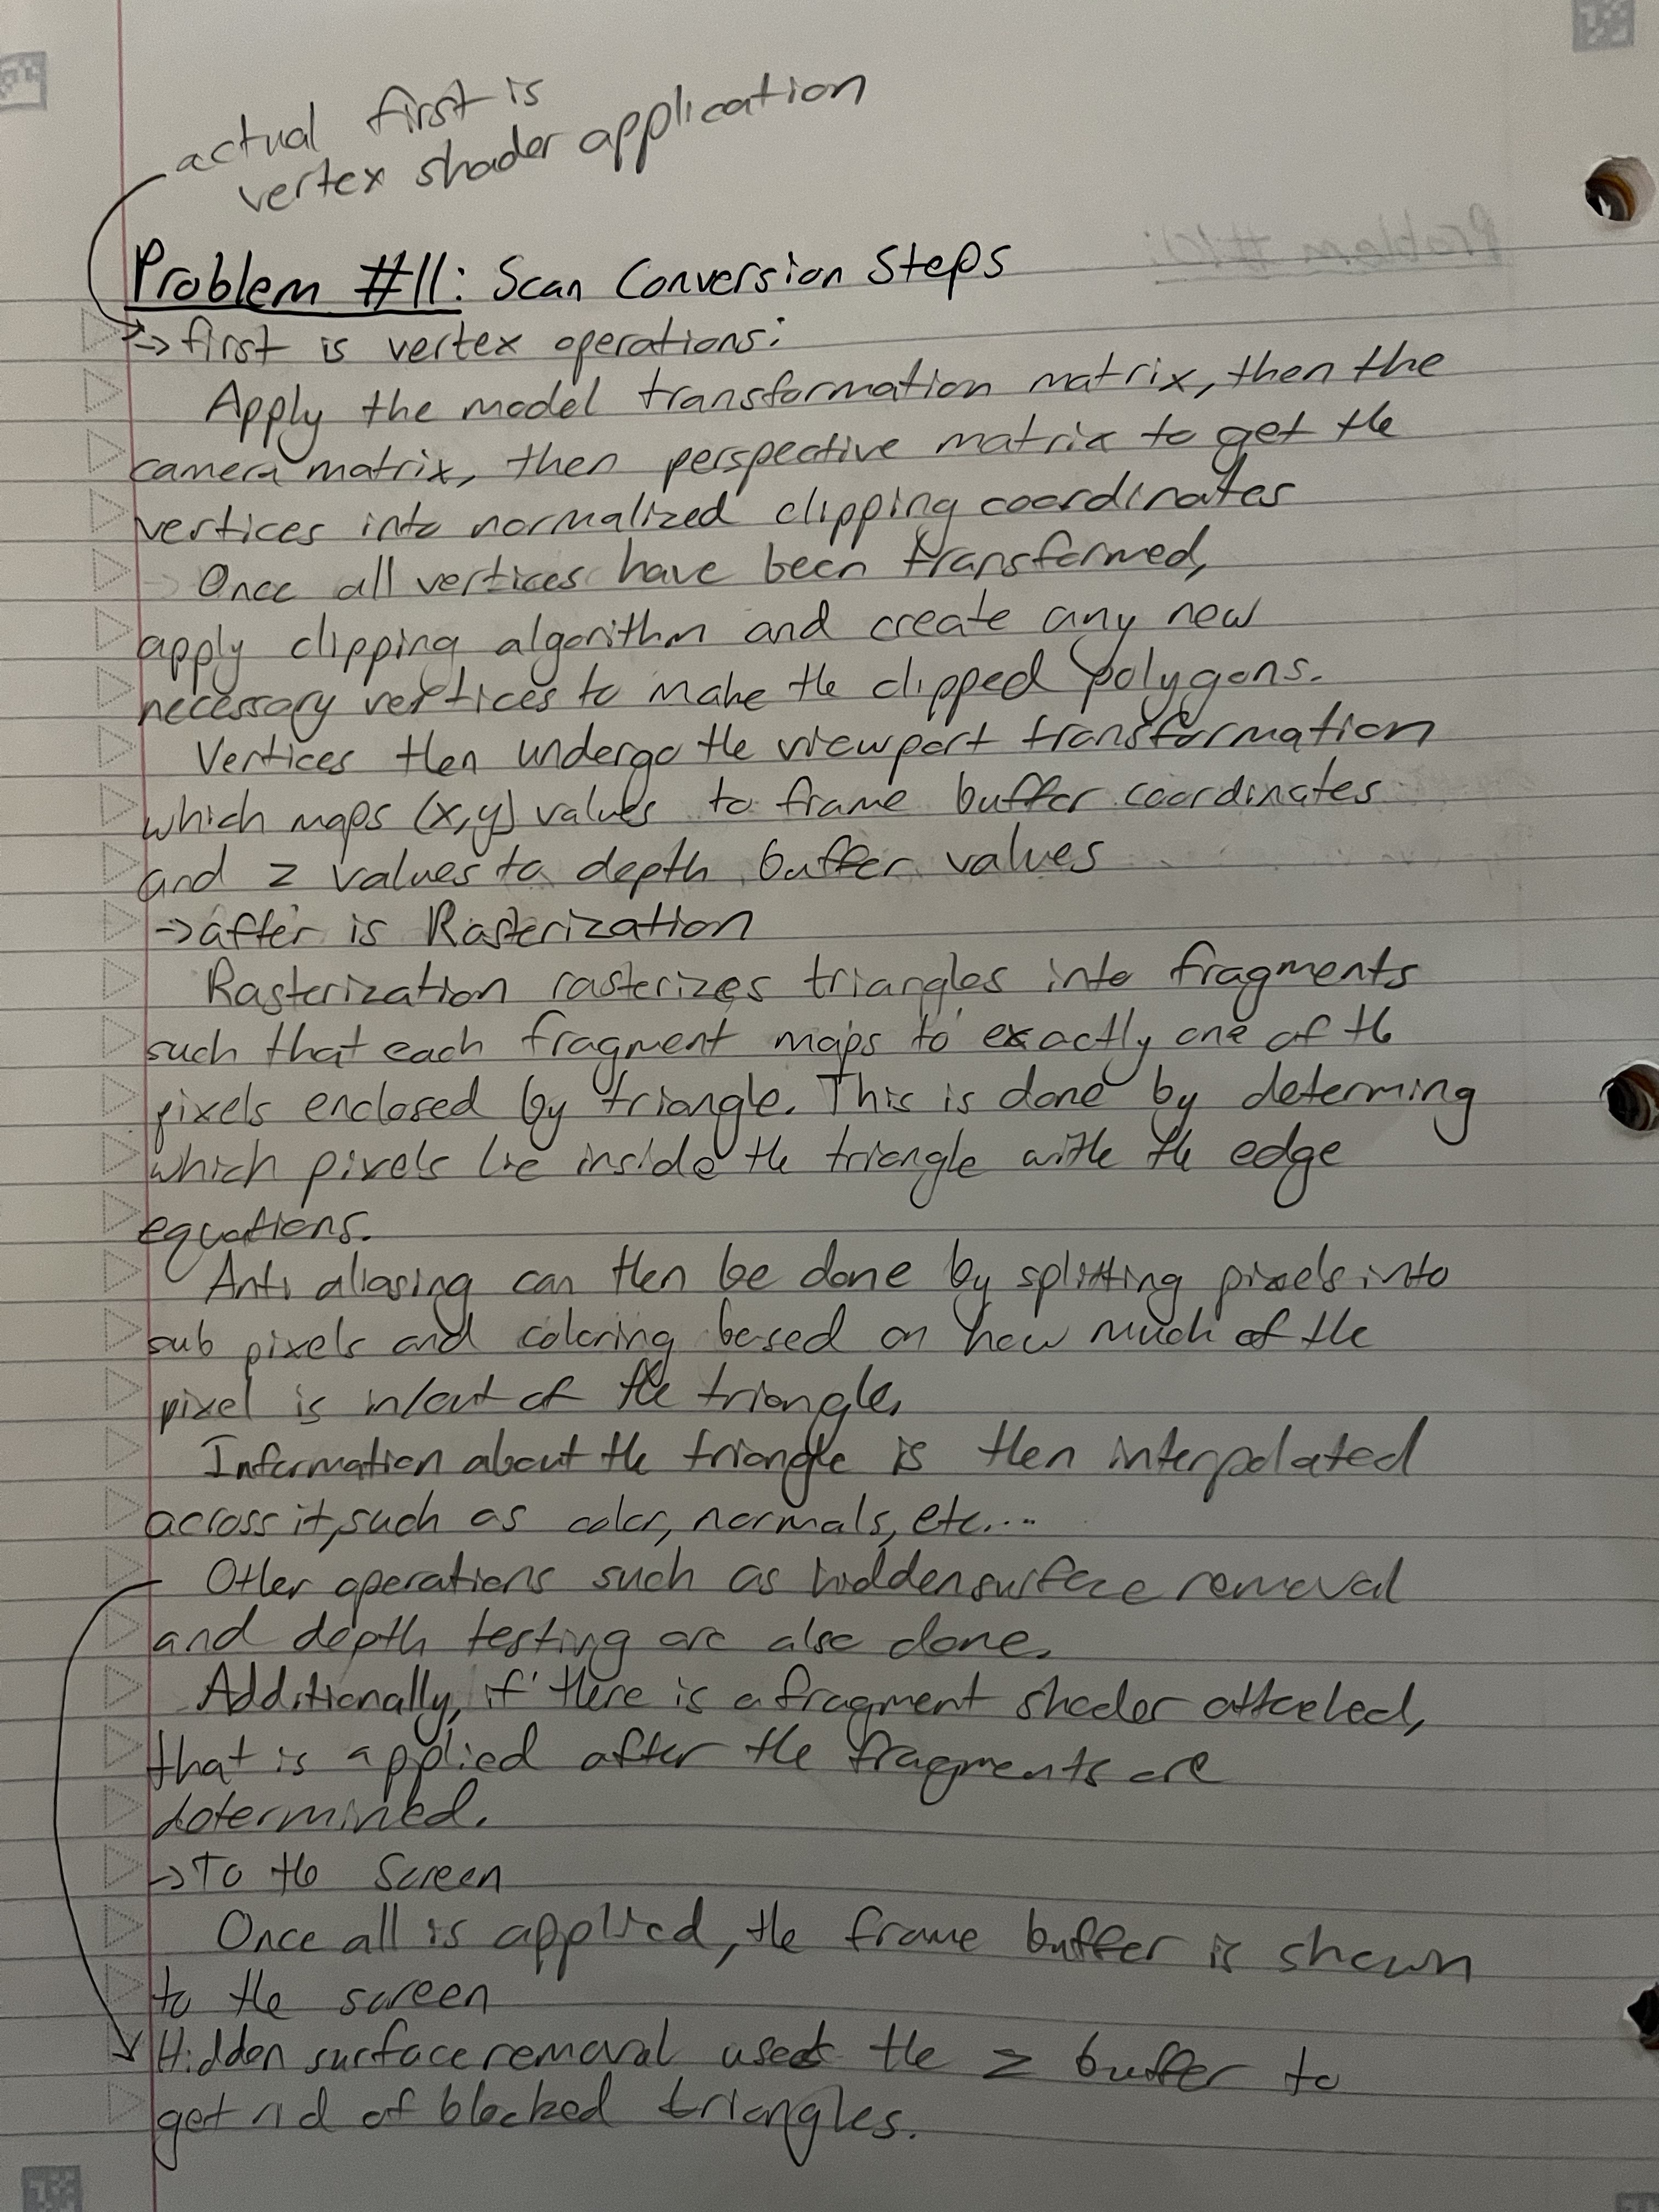 actual first is
vertex shader application
Problem #10:
Problem #11: Scan Conversion Steps
→ first is vertex operations:
Apply the model transformation matrix, then the
camera matrix, then perspective matrix to get the
vertices into normalized clipping coordinates
Once all vertices have been transformed,
apply clipping algorithm and create any new
necessary vertices to make the clipped polygons.
Vertices then undergo the viewport transformation
which maps (x,y) values to frame buffer coordinates
and z values to depth buffer values
→ after is Rasterization
Rasterization rasterizes triangles into fragments
such that each fragment maps to exactly one of the
pixels enclosed by triangle. This is done by determing
which pixels lie inside the triangle with the edge
equations.
Anti aliasing can then be done by splitting pixels into
sub pixels and coloring based on how much of the
pixel is in/out of the triangle.
Information about the triangle is then interpolated
across it, such as color, normals, etc....
Other operations such as hidden surface removal
and depth testing are also done.
Additionally, if there is a fragment shader attached,
that is applied after the fragments are
determined.
→ To the screen
Once all is applied, the frame buffer is shown
to the screen
Hidden surface removal uses the z buffer to
get rid of blocked triangles.